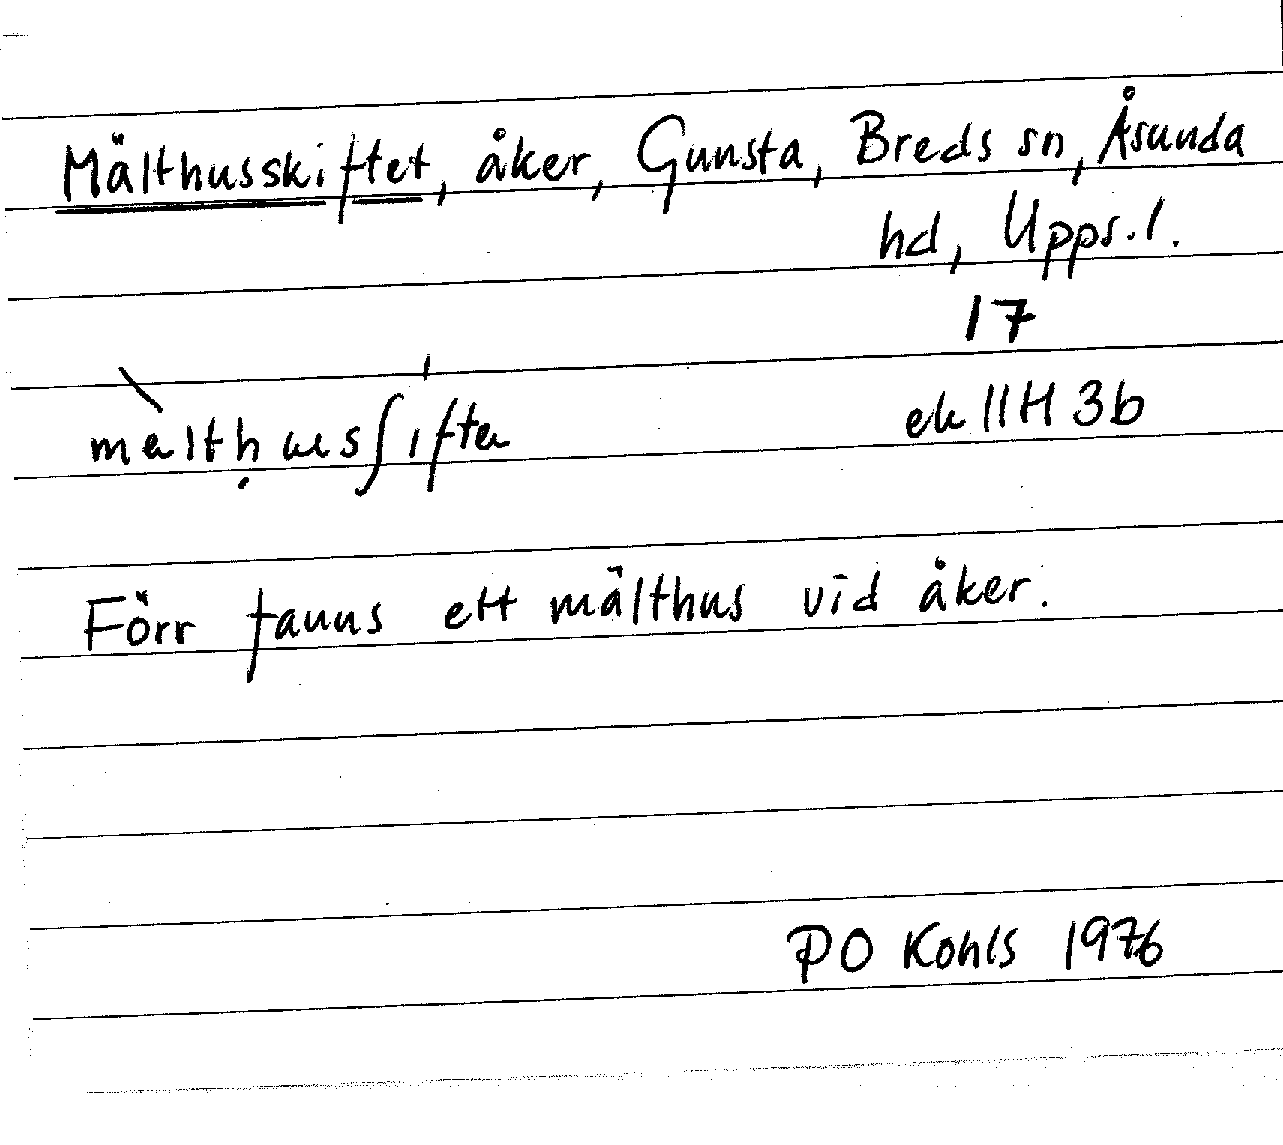 Mälthusskiftet, åker, Gunsta, Breds sn, Åsunda
hd, Upps.l.
17
mèltḥusʃıftɐ ek 11H 3b
Förr fanns ett mälthus vid åker.
PO Kohls 1976